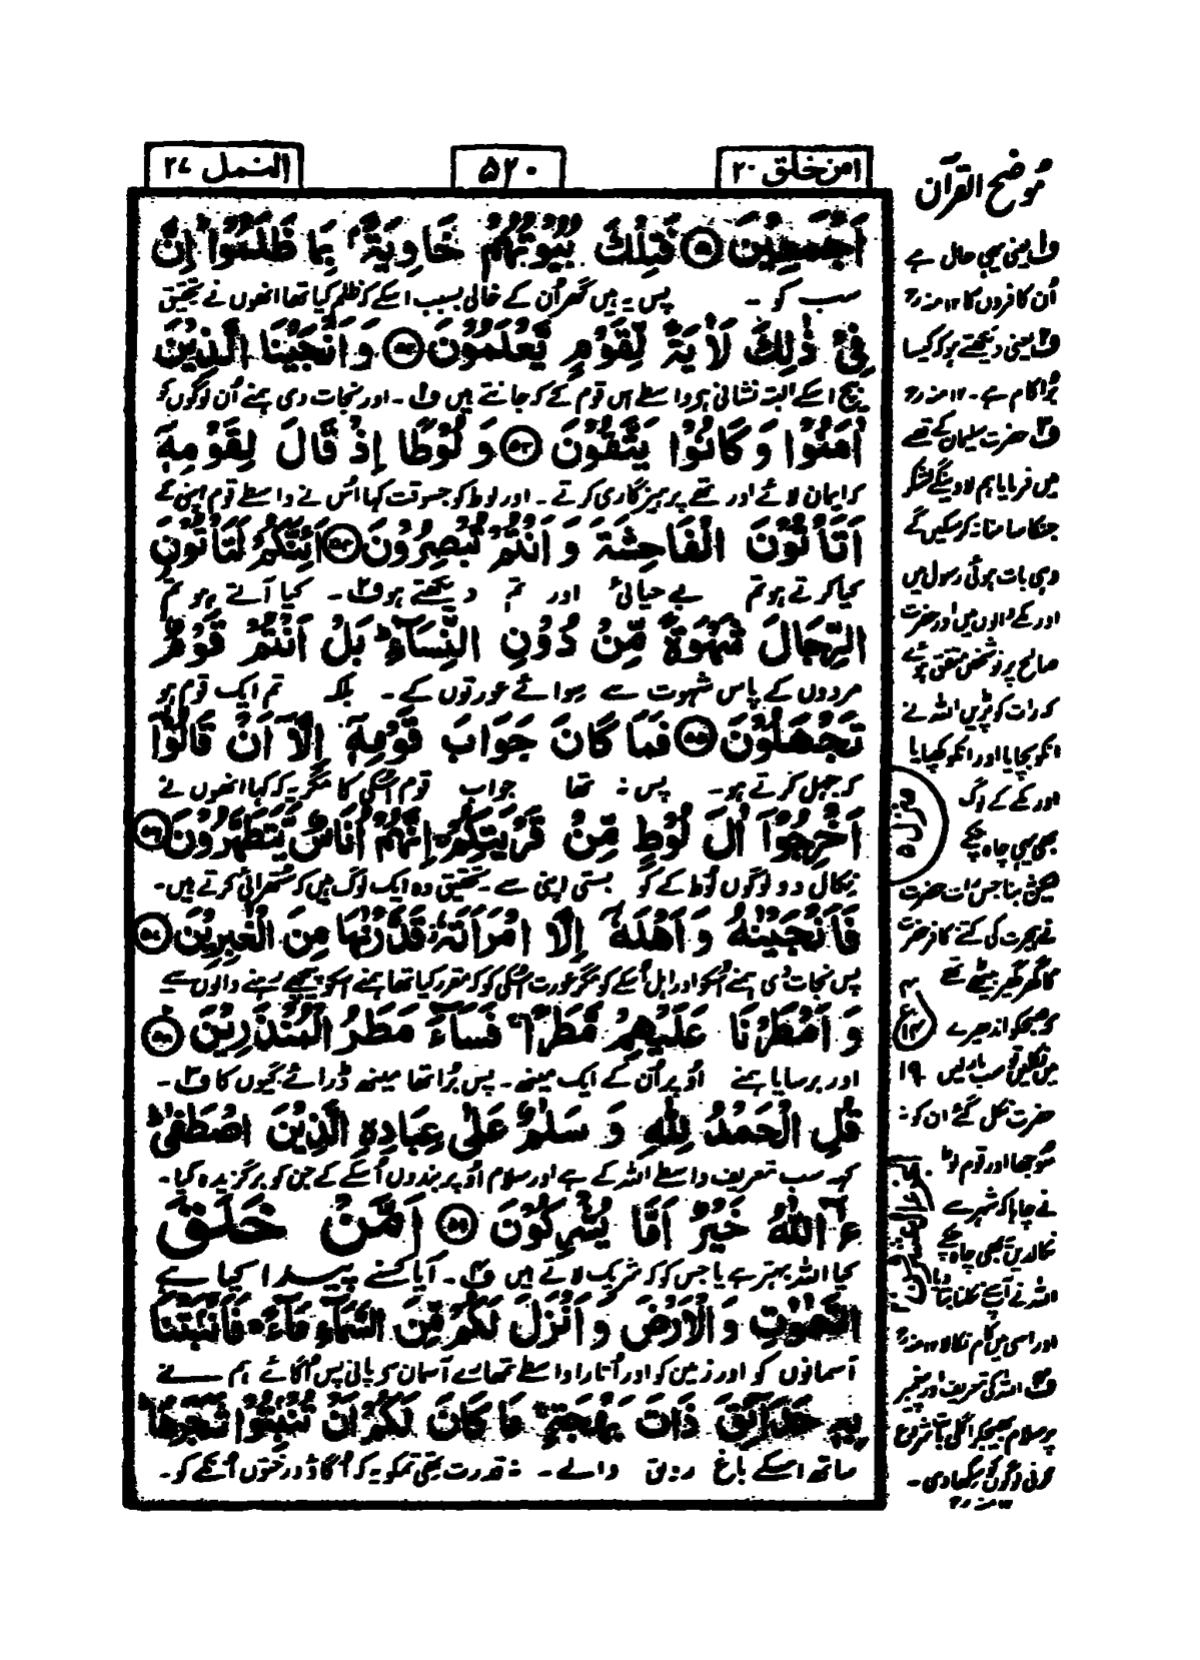 امن خلق ٢٠
۵۲۰
النمل ٢٧
اَجْمَعِيْنَ ﴿۵۱﴾ فَتِلْكَ بُيُوْتُهُمْ خَاوِيَةًۢ بِمَا ظَلَمُوْا ؕ اِنَّ
سب کو ۔ پس یہ ہیں گھر اُن کے خالی بسبب اسکے کہ ظلم کیا تھا انھوں نے تحقیق
فِیْ ذٰلِكَ لَاٰيَةً لِّقَوْمٍ يَّعْلَمُوْنَ ﴿۵۲﴾ وَ اَنْجَيْنَا الَّذِيْنَ
بیچ اسکے البتہ نشانی ہے واسطے اس قوم کے کہ جانتے ہیں ف۱۔ اور نجات دی ہمنے اُن لوگوں کو
اٰمَنُوْا وَ كَانُوْا يَتَّقُوْنَ ﴿۵۳﴾ وَ لُوْطًا اِذْ قَالَ لِقَوْمِهٖۤ
کہ ایمان لائے اور تھے پرہیزگاری کرتے ۔ اور لوط کو جسوقت کہا اُس نے واسطے قوم اپنی کے
اَتَاْتُوْنَ الْفَاحِشَةَ وَ اَنْتُمْ تُبْصِرُوْنَ ﴿۵۴﴾ اَئِنَّكُمْ لَتَاْتُوْنَ
کیا کرتے ہو تم بے حیائی اور تم دیکھتے ہو ف۲۔ کیا آتے ہو تم
الرِّجَالَ شَهْوَةً مِّنْ دُوْنِ النِّسَآءِ ؕ بَلْ اَنْتُمْ قَوْمٌ
مردوں کے پاس شہوت سے سوائے عورتوں کے ۔ بلکہ تم ایک قوم ہو
تَجْهَلُوْنَ ﴿۵۵﴾ فَمَا كَانَ جَوَابَ قَوْمِهٖۤ اِلَّاۤ اَنْ قَالُوْۤا
کہ جہل کرتے ہو ۔ پس نہ تھا جواب قوم اُسکی کا مگر یہ کہ کہا انھوں نے
اَخْرِجُوْۤا اٰلَ لُوْطٍ مِّنْ قَرْيَتِكُمْ ۚ اِنَّهُمْ اُنَاسٌ يَّتَطَهَّرُوْنَ ﴿۵۶﴾
نکال دو لوگوں لُوط کے کو بستی اپنی سے ۔ تحقیق وہ ایک لوگ ہیں کہ ستھرائی کرتے ہیں ۔
فَاَنْجَيْنٰهُ وَ اَهْلَهٗۤ اِلَّا امْرَاَتَهٗ ؗ قَدَّرْنٰهَا مِنَ الْغٰبِرِيْنَ ﴿۵۷﴾
پس نجات دی ہمنے اُسکو اور اہل اُسکے کو مگر عورت اُسکی کو کہ مقرر کیا تھا ہمنے اسکو پیچھے رہنے والوں سے
وَ اَمْطَرْنَا عَلَيْهِمْ مَّطَرًا ۚ فَسَآءَ مَطَرُ الْمُنْذَرِيْنَ ﴿۵۸﴾
اور برسایا ہمنے اُوپر اُن کے ایک مینھ ۔ پس بُرا تھا مینھ ڈرائے گیوں کا ف۳۔
قُلِ الْحَمْدُ لِلّٰهِ وَ سَلٰمٌ عَلٰی عِبَادِهِ الَّذِيْنَ اصْطَفٰی ؕ
کہہ سب تعریف واسطے اللہ کے ہے اور سلام اُوپر بندوں اُسکے کے جن کو برگزیدہ کیا ۔
ءٰٓاللّٰهُ خَيْرٌ اَمَّا يُشْرِكُوْنَ ﴿۵۹﴾ اَمَّنْ خَلَقَ
کیا اللہ بہتر ہے یا جس کو کہ شریک لاتے ہیں ف۴۔ آیا کسنے پیدا کیا ہے
السَّمٰوٰتِ وَ الْاَرْضَ وَ اَنْزَلَ لَكُمْ مِّنَ السَّمَآءِ مَآءً ۚ فَاَنْۢبَتْنَا
آسمانوں کو اور زمین کو اور اُتارا واسطے تمہارے آسمان سے پانی پس اُگائے ہم نے
بِهٖ حَدَآئِقَ ذَاتَ بَهْجَةٍ ۚ مَا كَانَ لَكُمْ اَنْ تُنْۢبِتُوْا شَجَرَهَا ؕ
ساتھ اسکے باغ رونق والے ۔ نہ قدرت تھی تمکو یہ کہ اُگاؤ درختوں اُنکے کو ۔
مُوضح القرآن
ف۱ یعنی یہی حال ہے
اُن کافروں کا ۱۲ منہ رح
ف۲ یعنی دیکھتے ہو کہ کیسا
بُرا کام ہے ۔ ۱۲ منہ رح
ف۳ حضرت سلیمان کے قصے
میں فرمایا ہم لاوینگے لشکر
جنکا سامنا نہ کر سکیں گے
وہی بات ہوئی رسول میں
اور مکے والوں میں اور حضرت
صالح پر نو شخص متفق ہوئے
کہ رات کو پڑیں اللہ نے
انکو بچایا اور انکو کھپایا
اور مکے کے لوگ
بھی یہی چاہ چکے
لیکن نہ بنا جس رات حضرت
نے ہجرت کی کتنے کافر حضرت
کا گھر گھیر بیٹھے تھے
کہ صبح کو اندھیرے
میں نکلیں تو سب مارلیں
حضرت نکل گئے ان کو نہ
سُوجھا اور قوم لوط
نے چاہا کہ شہر سے
نکالدیں یہ بھی چاہ چکے
اللہ نے آپ سے نکلنا بتا دیا
اور اسی میں کام نکالا ۱۲ منہ رح
ف۴ اللہ کی تعریف اور پیغمبر
پر سلام بھیجکر اگلی بات شروع
کرنی لوگوں کو سکھا دی ۔
۱۲ منہ رح
منزل ۵
ع
۱۹